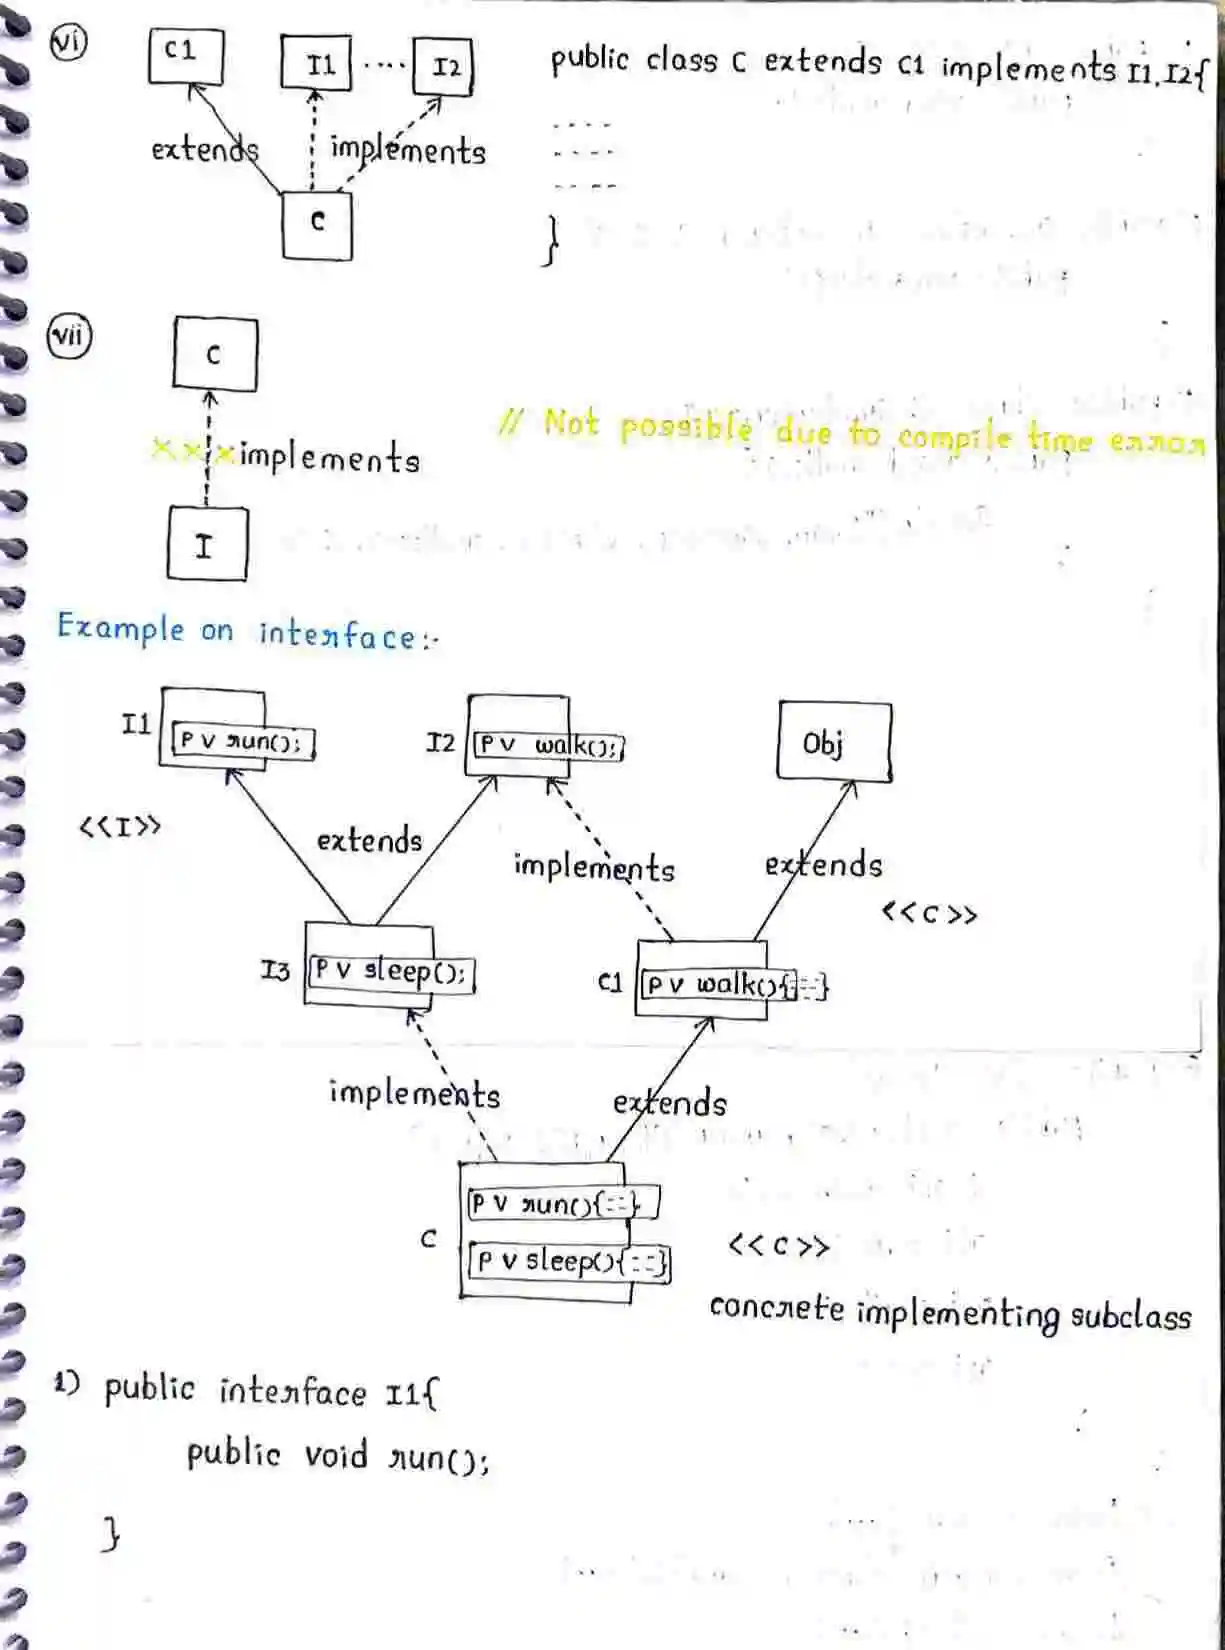 vi
C1 I1 .... I2
public class C extends C1 implements I1,I2{
extends implements
....
....
....
C
}
vii
C
// Not possible due to compile time error
xxx implements
I
Example on interface:-
I1 P V run();
I2 P V walk();
Obj
<<I>>
extends
implements
extends
<<C>>
I3 P V sleep();
C1 P V walk(){==}
implements
extends
C
P V run(){==}
P V sleep(){==}
<<C>>
concrete implementing subclass
1) public interface I1{
public void run();
}